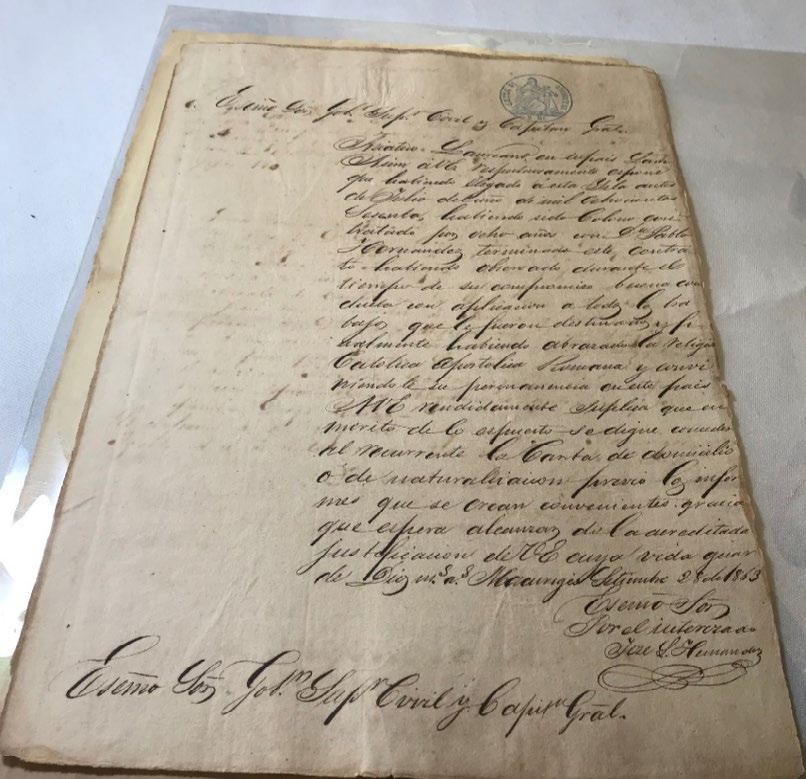 Esemo Sor. Gobr. Supr. Civil y Capitan Gral.
Asiatico Laureano en su pais
Asim á V.E. respetuosamente espone
que habiendo llegado á esta Isla antes
de Julio de mil ochocientos
Sesenta, habiendo sido Colono con
tratado por ocho años con Dn. Pablo
Hernandez terminado este contra
to habiendo observado durante el
tiempo de su compromiso buena con
ducta con aplicacion a todos los tra
bajos que le fueron destinados y fi
nalmente habiendo abrazado la religion
Catolica Apostolica Romana y convi
niendole su permanencia en este pais
A V.E. rendidamente Suplica que en
merito de lo espuesto se digne conceder
al recurrente la Carta de domicilio
o de naturalizacion previo los infor
mes que se crean convenientes: gracia
que espera alcanzar de la acreditada
justificacion de V.E. cuya vida guar
de Dios ms. as. Macuriges Setiembre 28 de 1863
Esemo Sor
Por el interezado
Jose L. Hernandez
Esemo Sor. Gobr. Supr. Civil y Capitn. Gral.